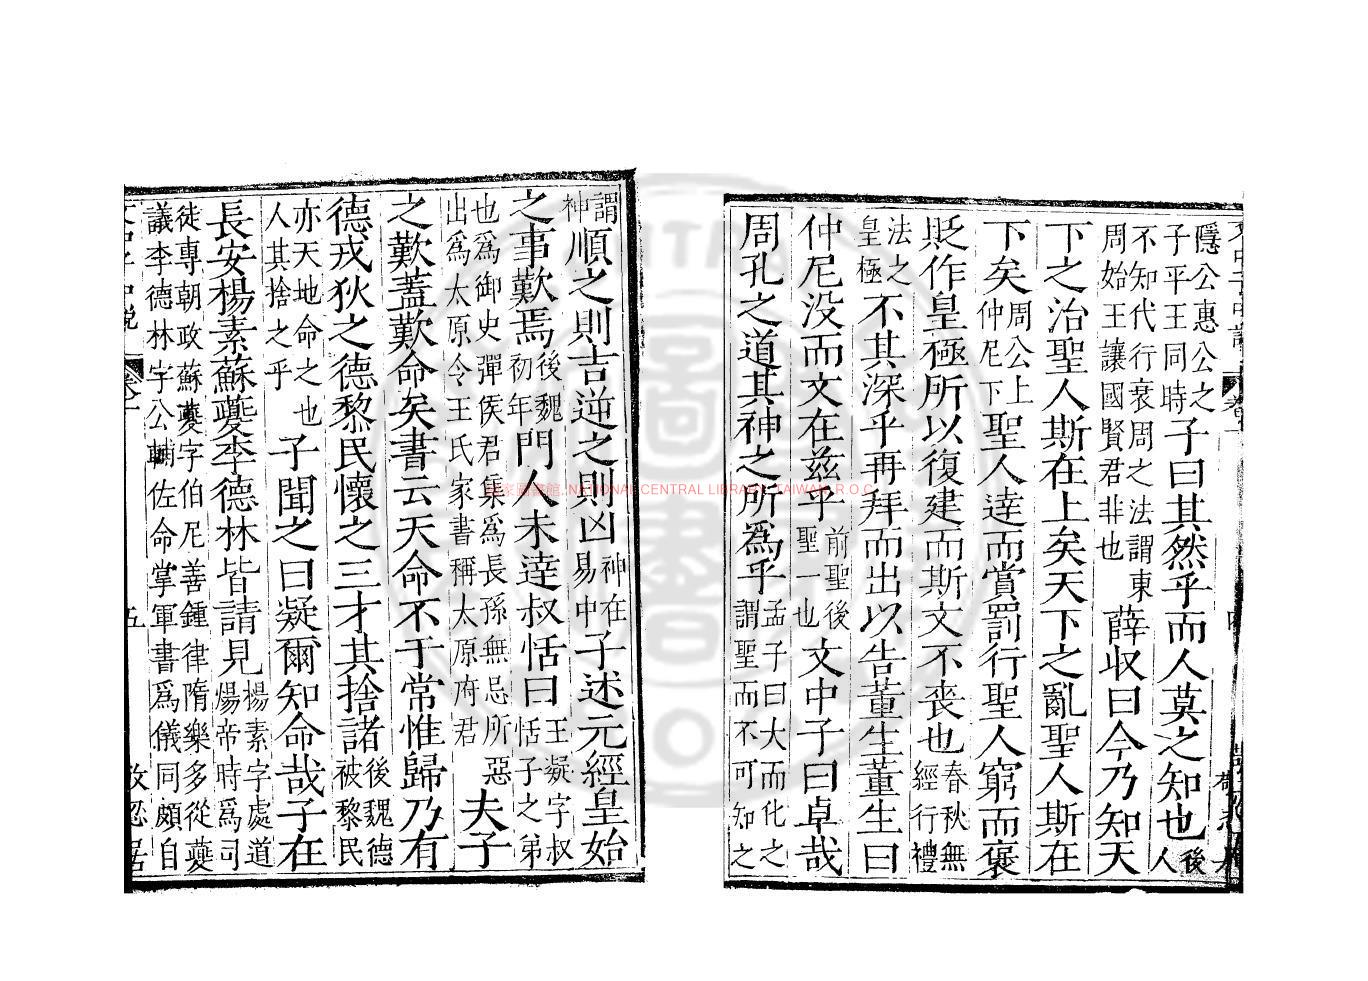 隱公惠公之子平王同時子曰其然乎而人莫之知也後人
不知代行衰周之法謂東周始王讓國賢君非也薛収曰今乃知天
下之治聖人斯在上矣天下之亂聖人斯在
下矣周公上仲尼下聖人達而賞罰行聖人窮而褒
貶作皇極所以復建而斯文不喪也春秋無經行禮
法之皇極不其深乎再拜而出以告董生董生曰
仲尼没而文在兹乎前聖後聖一也文中子曰卓哉
周孔之道其神之所爲乎孟子曰大而化之謂聖而不可知之
謂神順之則吉逆之則凶神在易中子述元經皇始
之事歎焉後魏初年門人未達叔恬曰王凝字叔恬子之弟
也爲御史彈侯君集爲長孫無忌所惡出爲太原令王氏家書稱太原府君夫子
之歎蓋歎命矣書云天命不于常惟歸乃有
德戎狄之德黎民懷之三才其捨諸後魏德被黎民
亦天地命之也人其捨之乎子聞之曰凝爾知命哉子在
長安楊素蘇夔李德林皆請見楊素字處道煬帝時爲司
徒專朝政蘇夔字伯尼善鍾律隋樂多從夔議李德林字公輔佐命掌軍書爲儀同頗自
五
國家圖書館, NATIONAL CENTRAL LIBRARY, TAIWAN, R.O.C